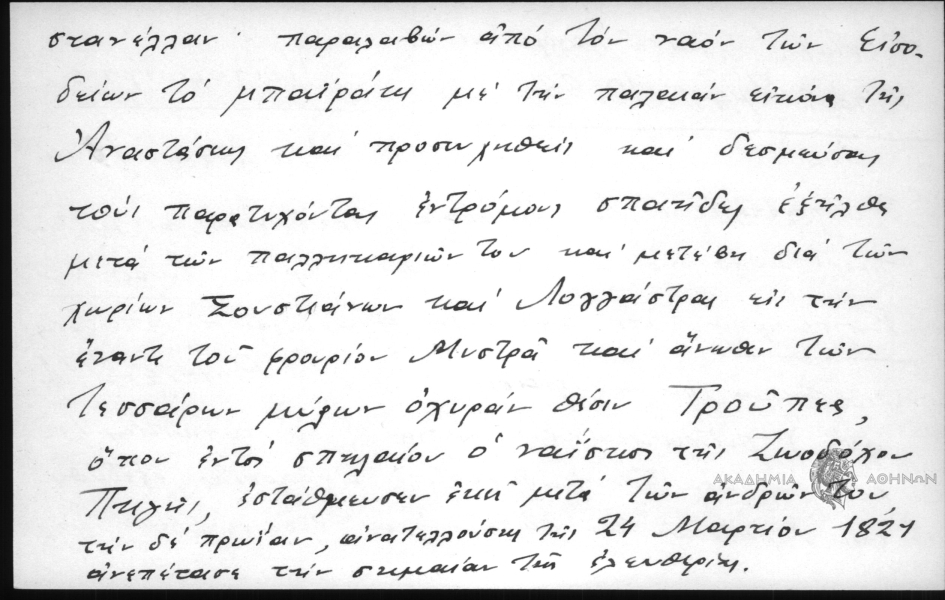 στανέλλαν· παραλαβών ἀπό τόν ναόν τῶν Εἰσο-
δείων τό μπαϊράκι μέ τήν παλαιάν εἰκόνα τῆς
Ἀναστάσεως καί προσευχηθείς καί δεσμεύσας
τούς παρατυχόντας ἐντρόμους σπαΐδες ἐξῆλθε
μετά τῶν παλληκαριῶν του καί μετέβη διά τῶν
χωρίων Σουστιάνων καί Λογγάστρας εἰς τήν
ἔναντι τοῦ φρουρίου Μυστρᾶ καί ἄνωθεν τῶν
τεσσάρων μύλων ὀχυράν θέσιν Τροῦπες,
ὅπου ἐντός σπηλαίου ὁ ναΐσκος τῆς Ζωοδόχου
Πηγῆς, ἐστάθμευσεν ἐκεῖ μετά τῶν ἀνδρῶν του
τήν δέ πρωίαν, ἀνατελλούσης τῆς 24 Μαρτίου 1821
ἀνεπέτασε τήν σημαίαν τῆς ἐλευθερίας.
ΑΚΑΔΗΜΙΑ ΑΘΗΝΩΝ